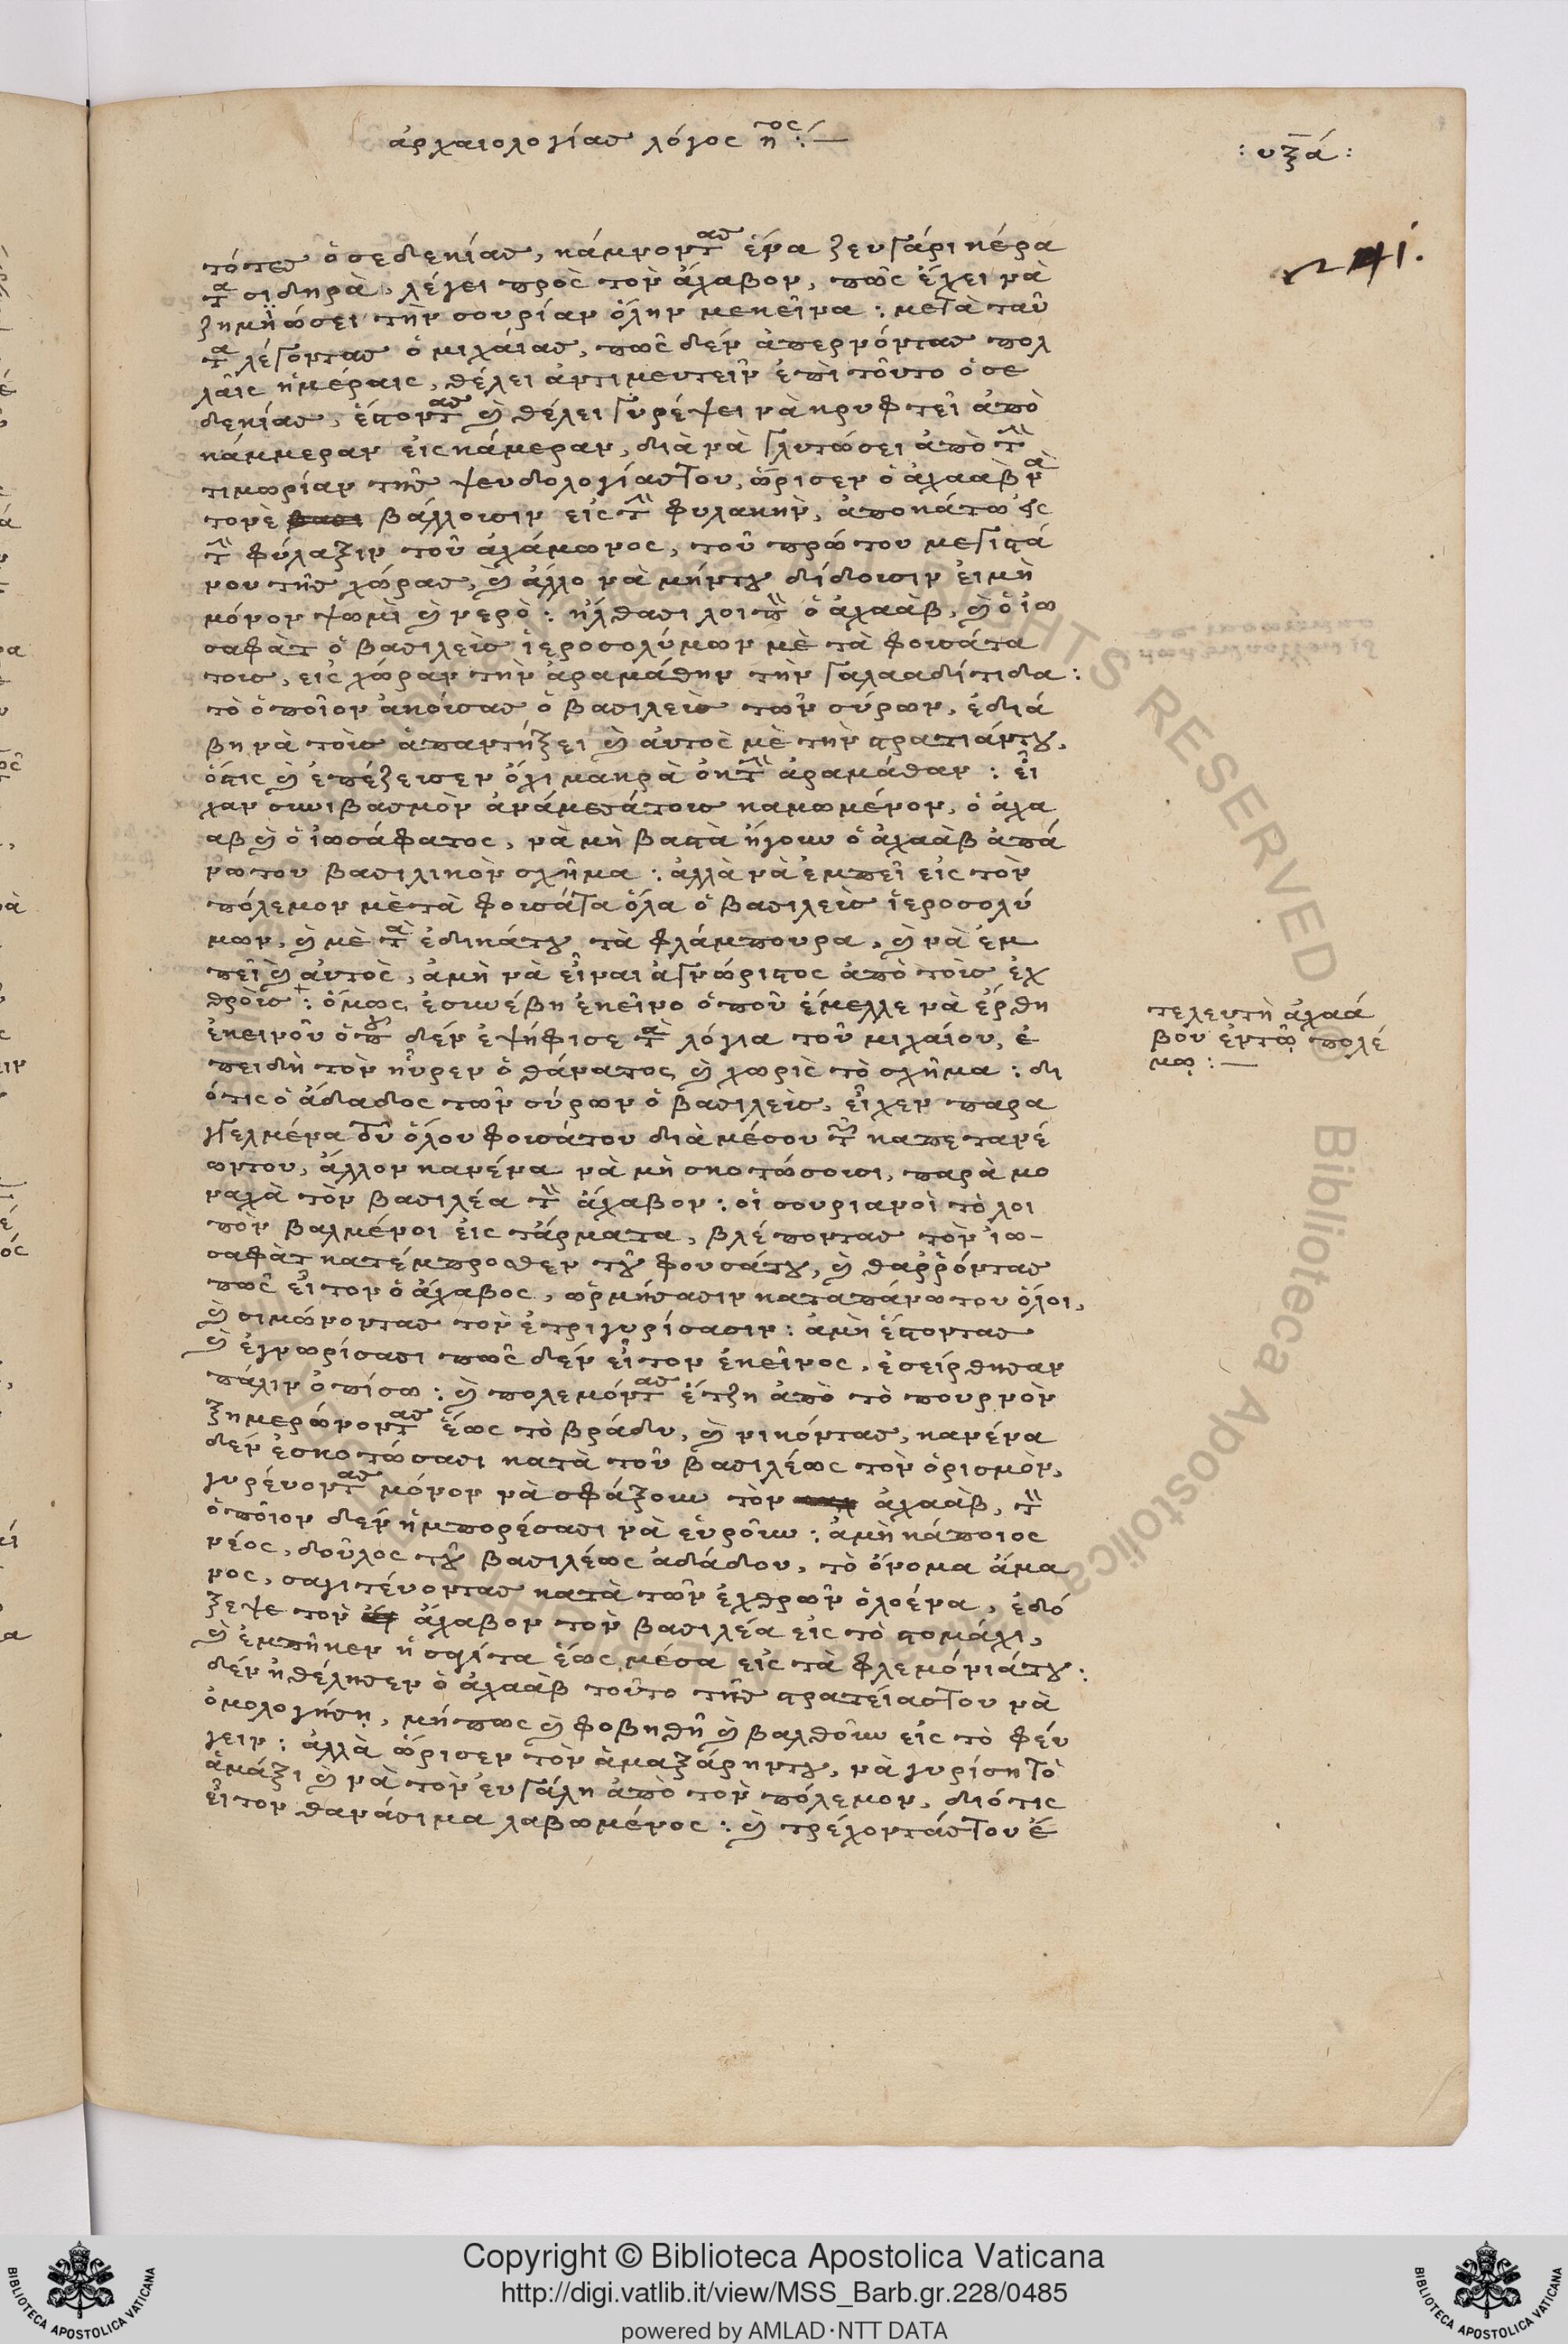 ἀρχαιολογίας λόγος η^ος :—
: υξά :
241.
τότες ὁ σεδεκίας, κάμνοντας ἕνα ζευγάρι κέρα
τα σιδηρὰ, λέγει πρὸς τὸν ἄχαβον, πῶς ἔχει νὰ
ζημηώσει τὴν συρίαν ὅλην μεκεῖνα : μετὰ ταῦ
τα λέγοντας ὁ μιχάιας, πῶς δὲν ἀπερνόντας πολ
λαῖς ἡμέραις, θέλει ἀντιμευτεῖν ἐπὶ τοῦτο ὁ σε
δεκίας, ἔστοντας καὶ θέλει γυρέψει νὰ κρυφτεῖ ἀπὸ
κάμμεραν εἰς κάμεραν, διὰ νὰ γλυτώσει ἀπὸ τὴν
τιμωρίαν τῆς ψευδολογίας του, ὥρισεν ὁ ἀχαάβ νὰ
τονὲ βάλλουσιν εἰς τὴν φυλακὴν, ἀποκάτω εἰς
τὴν φύλαξιν τοῦ ἀχάμωνος, τοῦ πρώτου μεγιστά
νου τῆς χώρας, καὶ ἄλλο νὰ μήντου δίδουσιν εἰ μὴ
μόνον ψωμὶ καὶ νερὸ : ἤλθασι λοιπὸν ὁ ἀχαὰβ, καὶ ὁ ἰω
σαφὰτ ὁ βασιλεὺς ἱεροσολύμων μὲ τὰ φουσάτα
τους, εἰς χώραν τὴν ἀραμάθην τὴν γαλααδίτιδα :
τὸ ὁποῖον ἀκούσας ὁ βασιλεὺς τῶν σύρων, ἐδιά
βη νὰ τοὺς ἀπαντήξει καὶ αὐτὸς μὲ τὴν στρατιάντου,
ὅστις καὶ ἐπέζευσεν ὄχι μακρὰ ἐκ τὴν ἀραμάθαν : εἶ
χαν συνιβασμὸν ἀνάμεσάτους καμωμένον, ὁ ἀχα
αβ καὶ ὁ ἰωσάφατος, νὰ μὴ βαστὰ ἤγουν ὁ ἀχαὰβ ἀπά
νωτου βασιλικὸν σχῆμα : ἀλλὰ νὰ ἐμπεῖ εἰς τὸν
πόλεμον μὲ τὰ φουσάτα ὅλα ὁ βασιλεὺς ἱεροσολύ
μων, καὶ μὲ τὰ ἐδικάτου τὰ φλάμπουρα, καὶ νὰ ἐμ
πεῖ καὶ αὐτὸς, ἀμὴ νὰ εἶναι ἀγνώριστος ἀπὸ τοὺς ἐχ
θροὺς+ : ὅμως ἐσυνέβη ἐκεῖνο ὁποῦ ἔμελλε νὰ ἔρθη
ἐκεινοῦ ὁποῦ δὲν ἐψήφισε τὰ λόγια τοῦ μιχαίου, ἐ
πειδὴ τὸν ηὗρεν ὁ θάνατος καὶ χωρὶς τὸ σχῆμα : δι
ότις ὁ ἄδαδος τῶν σύρων ὁ βασιλεὺς, εἶχεν παρα
γγελμένα τοῦ ὅλου φουσάτου διὰ μέσου τῶν καπετανέ
ωντου, ἄλλον κανένα νὰ μὴ σκοτώσουσι, παρὰ μο
ναχὰ τὸν βασιλέα τὸν ἄχαβον : οἱ συριανοὶ τὸ λοι
πὸν βαλμένοι εἰς τἄρματα, βλέποντας τὸν ἰω-
σαφὰτ κατέμπροσθεν τοῦ φουσάτου, καὶ θαρρόντας
πῶς εἶτον ὁ ἄχαβος, ὡρμήσασιν καταπάνωτου ὅλοι,
καὶ σιμώνοντας τὸν ἐτριγυρίσασιν : ἀμὴ ἔστοντας
καὶ ἐγνωρίσασι πῶς δὲν εἶτον ἐκεῖνος, ἐσείρθησαν
πάλιν ὀπίσω : καὶ πολεμόντας ἔτζη ἀπὸ τὸ πουρνὸν
ξημερώνοντας ἕως τὸ βράδυ, καὶ νικόντας, κανένα
δὲν ἐσκοτώσασι κατὰ τοῦ βασιλέως τὸν ὁρισμὸν,
γυρένοντας μόνον νὰ σφάξουν τὸν ἀχαὰβ, τὸν
ὁποῖον δὲν ἡμπορέσασι νὰ εὑροῦν : ἀμὴ κάποιος
νέος, δοῦλος τοῦ βασιλέως ἀδάδου, τὸ ὄνομα ἄμα
νος, σαγιτένοντας κατὰ τῶν ἐχθρῶν ὁλοένα, ἐδό
ξεψε τὸν ἄχαβον τὸν βασιλέα εἰς τὸ στομάχι,
καὶ ἐμπῆκεν ἡ σαγίτα ἕως μέσα εἰς τὰ φλεμόνιάτου :
δὲν ἠθέλησεν ὁ ἀχαὰβ τοῦτο τῆς στρατείας του νὰ
ὁμολογήση, μήπως καὶ φοβηθῆ καὶ βαλθοῦν εἰς τὸ φεύ
γειν : ἀλλὰ ὥρισεν τὸν ἁμαξάρηντου, νὰ γυρίση τὸ
ἁμάξι καὶ νὰ τὸν εὐγάλη ἀπὸ τὸν πόλεμον, διότις
εἶτον θανάσιμα λαβωμένος : καὶ τρέχοντάς του ἔ
τελευτὴ ἀχαά
βου ἐν τῷ πολέ
μῳ : —
Copyright © Biblioteca Apostolica Vaticana
http://digi.vatlib.it/view/MSS_Barb.gr.228/0485
powered by AMLAD·NTT DATA